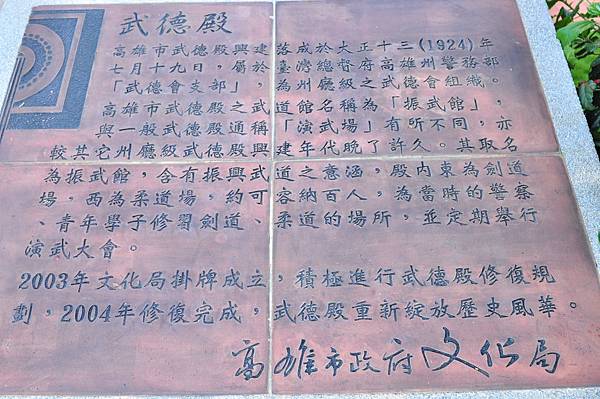 武德殿
高雄市武德殿興建落成於大正十三(1924)年
七月十九日，屬於臺灣總督府高雄州警務部
「武德會支部」，為州廳級之武德會組織。
高雄市武德殿之武道館名稱為「振武館」，
與一般武德殿通稱「演武場」有所不同，亦
較其它州廳級武德殿興建年代晚了許久。其取名
為振武館，含有振興武道之意涵，殿內東為劍道
場，西為柔道場，約可容納百人，為當時的警察
、青年學子修習劍道、柔道的場所，並定期舉行
演武大會。
2003年文化局掛牌成立，積極進行武德殿修復規
劃，2004年修復完成，武德殿重新綻放歷史風華。
高雄市政府文化局